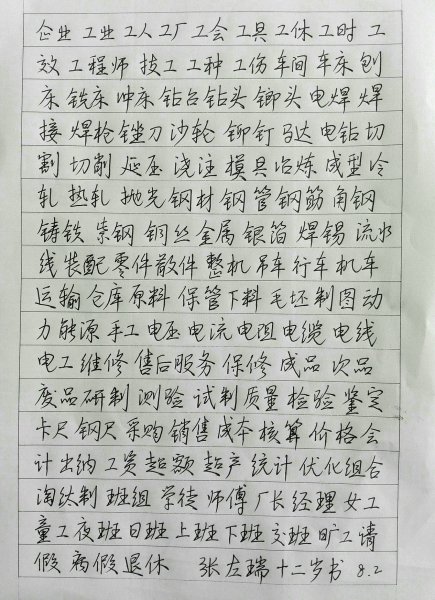 企业 工业 工人 工厂 工会 工具 工休 工时 工
效 工程师 技工 工种 工伤 车间 车床 刨
床 铣床 冲床 钻台 钻头 铆头 电焊 焊
接 焊枪 锉刀 沙轮 铆钉 马达 电钻 切
割 切削 延压 浇注 模具 冶炼 成型 冷
轧 热轧 抛光 钢材 钢管 钢筋 角钢
铸铁 紫铜 铜丝 金属 银箔 焊锡 流水
线 装配 零件 散件 整机 吊车 行车 机车
运输 仓库 原料 保管 下料 毛坯 制图 动
力 能源 手工 电压 电流 电阻 电缆 电线
电工 维修 售后服务 保修 成品 次品
废品 研制 测验 试制 质量 检验 鉴定
卡尺 钢尺 采购 销售 成本 核算 价格 会
计 出纳 工资 超额 超产 统计 优化组合
淘汰制 班组 学徒 师傅 厂长 经理 女工
童工 夜班 日班 上班 下班 交班 旷工 请
假 病假 退休 张左瑞 十二岁书 8.2